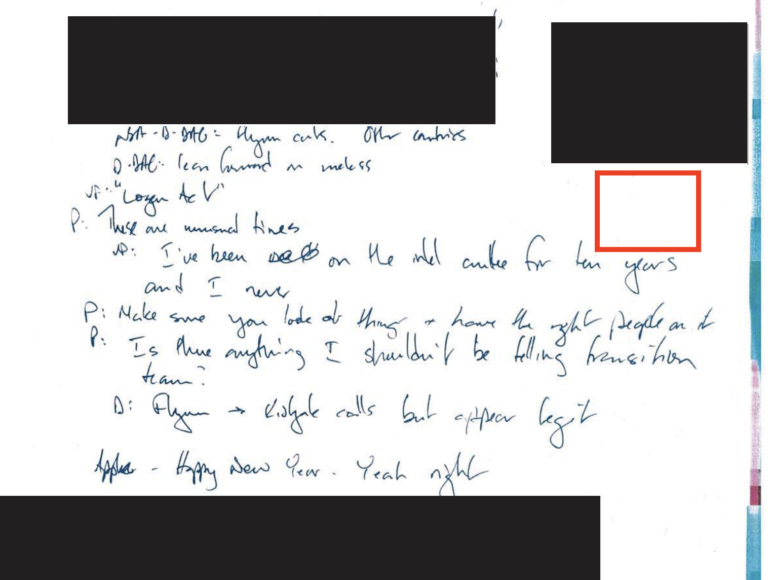 NSA-D-DAG = Flynn cuts. Other countries
D-DAG: lean forward on unclass
VP: "Logan Act"
P: These are unusual times
VP: I've been on the intel cmtee for ten years
and I never
P: Make sure you look at things + have the right people on it
P: Is there anything I shouldn't be telling transition
team?
D: Flynn → Kislyak calls but appear legit
- Happy New Year. Yeah right